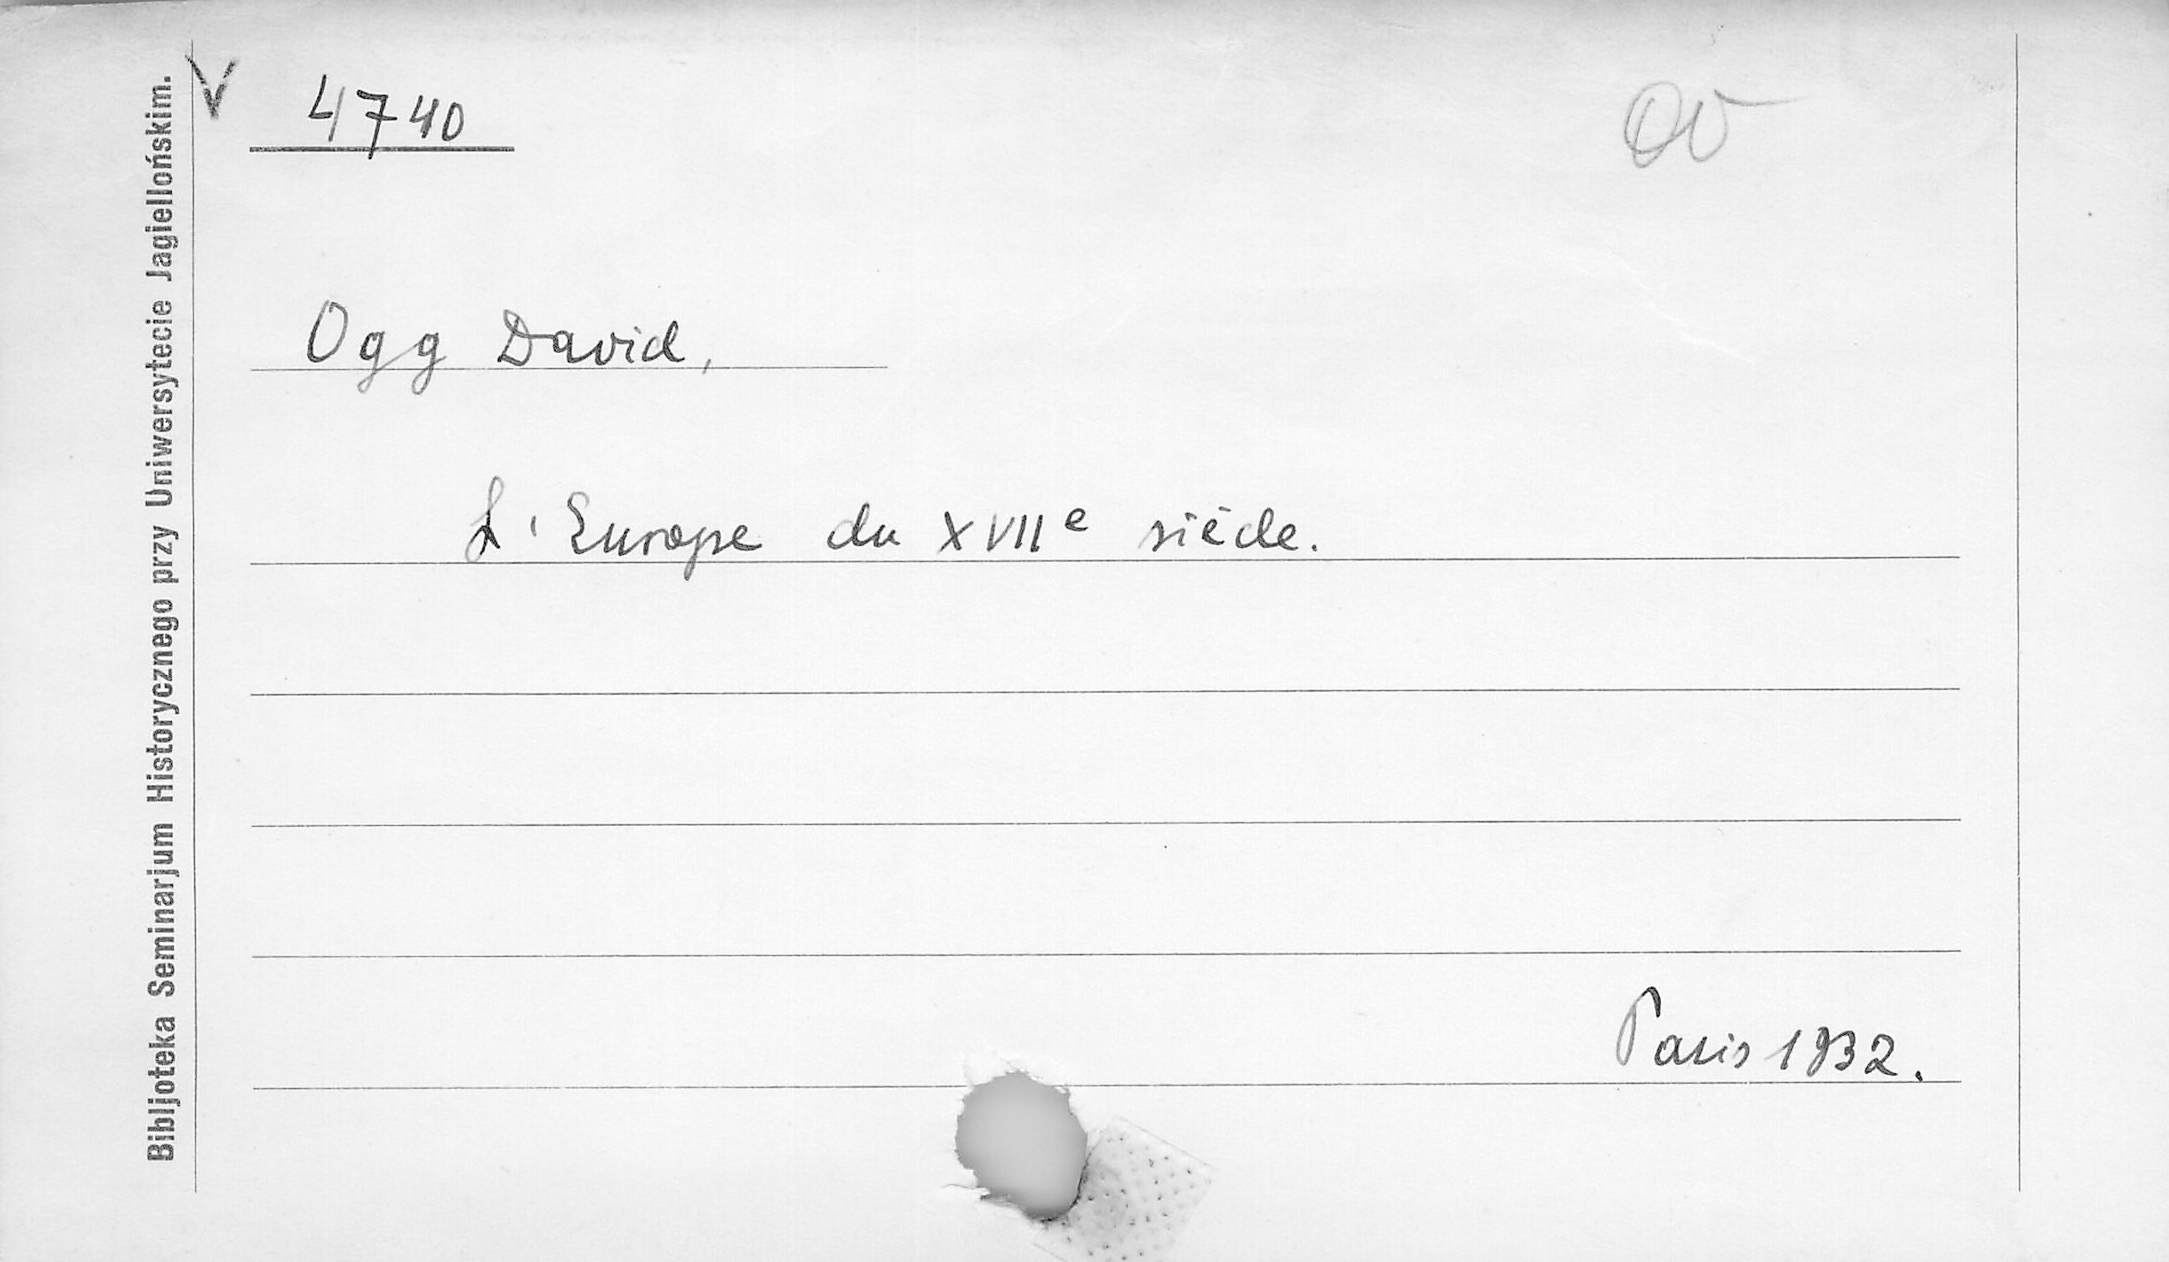 V 4740
Ogg David,
L'Europe du XVIIe siècle.
Paris 1932.
Bibljoteka Seminarjum Historycznego przy Uniwersytecie Jagiellońskim.